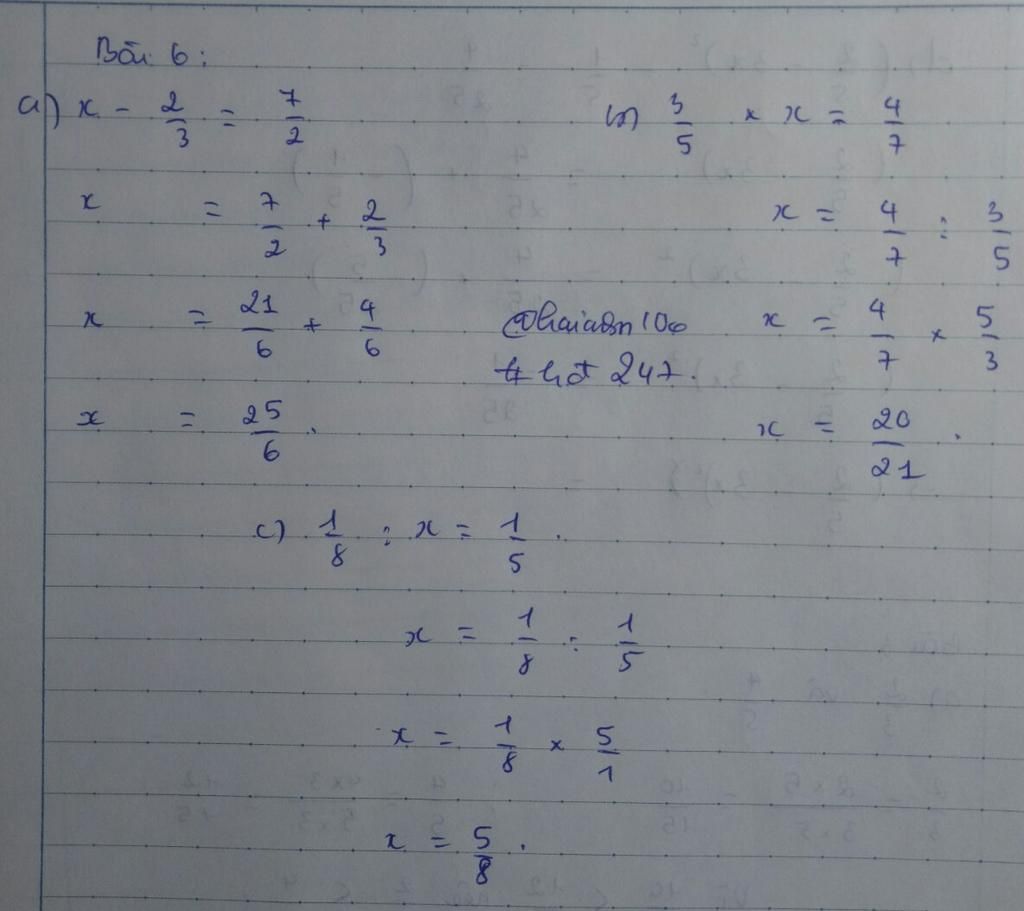 Bài 6:
a) x - 2/3 = 7/2
x = 7/2 + 2/3
x = 21/6 + 4/6
x = 25/6.
b) 3/5 × x = 4/7
x = 4/7 : 3/5
x = 4/7 × 5/3
x = 20/21.
# hđt 247.
c) 1/8 : x = 1/5.
x = 1/8 : 1/5
x = 1/8 × 5/1
x = 5/8.